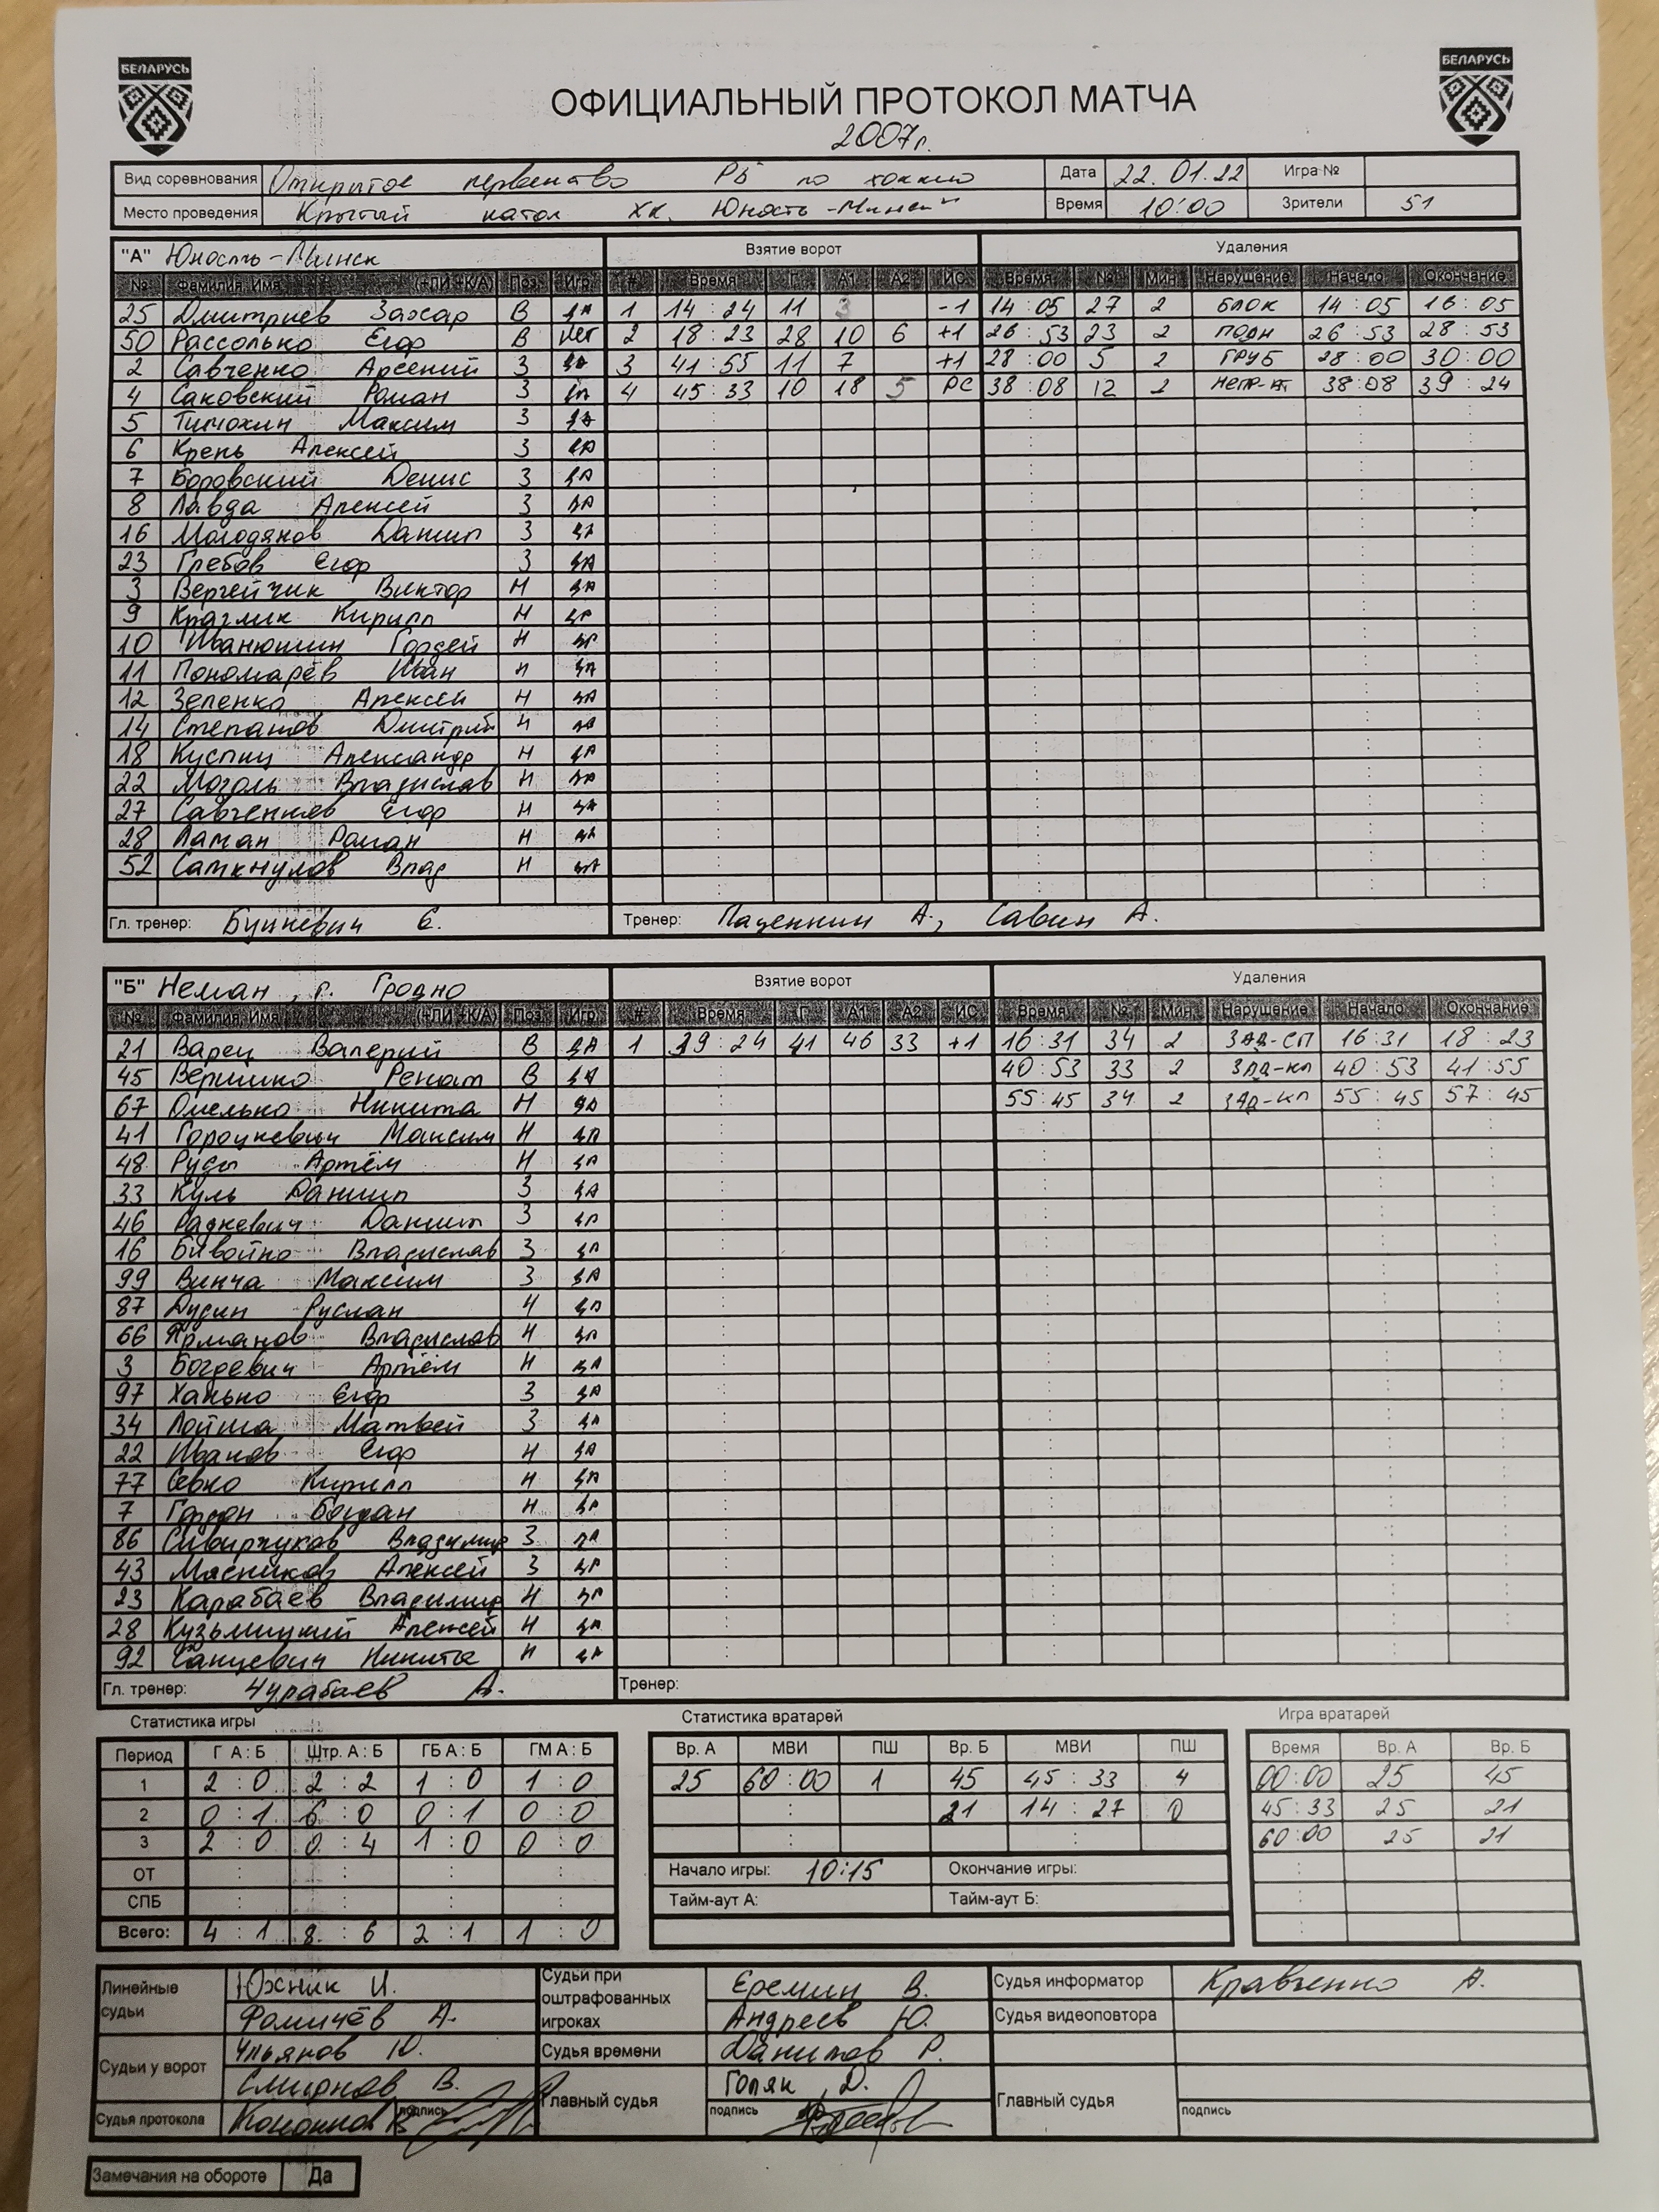 БЕЛАРУСЬ БЕЛАРУСЬ
ОФИЦИАЛЬНЫЙ ПРОТОКОЛ МАТЧА
2007г.
Вид соревнования Открытое первенство РБ по хоккею Дата 22.01.22 Игра №
Место проведения Крытый каток ХК "Юность-Минск" Время 10:00 Зрители 51
"А" Юность-Минск Взятие ворот Удаления
№ Фамилия, Имя (+ЛИ +К/А) Поз Игр # Время Г А1 А2 ИС Время № Мин Нарушение Начало Окончание
25 Дмитриев Захар В да 1 14:24 11 3 -1 14:05 27 2 БЛОК 14:05 16:05
50 Рассолько Егор В нет 2 18:23 28 10 6 +1 26:53 23 2 ПОДН 26:53 28:53
2 Савченко Арсений З да 3 41:55 11 7 +1 28:00 5 2 ГРУБ 28:00 30:00
4 Саковский Роман З да 4 45:33 10 18 5 РС 38:08 12 2 38:08 39:24
5 Тимохин Максим З да
6 Крень Алексей З да
7 Боровский Денис З да
8 Лавда Алексей З да
16 Молодянов Данил З да
23 Глебов Егор З да
3 Вергейчик Виктор Н да
9 Крагмик Кирилл Н да
10 Иванюшин Гордей Н да
11 Пономарёв Иван Н да
12 Зеленко Алексей Н да
14 Степанов Дмитрий Н да
18 Куспиц Александр Н да
22 Моголь Владислав Н да
27 Савченков Егор Н да
28 Ламан Роман Н да
52 Саткнулов Влад Н да
Гл. тренер: Бушкевич Е. Тренер: Паценкин А., Савин А.
"Б" Неман, г. Гродно Взятие ворот Удаления
№ Фамилия, Имя (+ЛИ +К/А) Поз Игр # Время Г А1 А2 ИС Время № Мин Нарушение Начало Окончание
21 Варец Валерий В да 1 39:24 41 46 33 +1 16:31 34 2 ЗАД-СП 16:31 18:23
45 Вершко Ренат В да 40:53 33 2 ЗАД-КЛ 40:53 41:55
67 Омелько Никита Н да 55:45 34 2 ЗАД-КЛ 55:45 57:45
41 Городкевич Максим Н да
48 Руды Артём Н да
33 Куль Даниил З да
46 Радкевич Даниил З да
16 Бивойно Владислав З да
99 Винча Максим З да
87 Дудин Руслан Н да
66 Ярманов Владислав Н да
3 Богдевич Артём Н да
97 Ханько Егор З да
34 Лойша Матвей З да
22 Иванов Егор Н да
77 Севко Кирилл Н да
7 Гордон Богдан Н да
86 Сивирчуков Владимир З да
43 Мясников Алексей З да
23 Карабаев Владимир Н да
28 Кузьмицкий Алексей Н да
92 Ганцевич Никита Н да
Гл. тренер: Чурабаев А. Тренер:
Статистика игры Статистика вратарей Игра вратарей
Период Г А : Б Штр. А : Б ГБ А : Б ГМ А : Б Вр. А МВИ ПШ Вр. Б МВИ ПШ Время Вр. А Вр. Б
1 2 : 0 2 : 2 1 : 0 1 : 0 25 60:00 1 45 45:33 4 00:00 25 45
2 0 : 1 6 : 0 0 : 1 0 : 0 : 21 14:27 0 45:33 25 21
3 2 : 0 0 : 4 1 : 0 0 : 0 : : 60:00 25 21
ОТ : : : : Начало игры: 10:15 Окончание игры: :
СПБ : : : : Тайм-аут А: Тайм-аут Б: :
Всего: 4 : 1 8 : 6 2 : 1 1 : 0 :
Линейные судьи Южник И. Судьи при оштрафованных игроках Еремин В. Судья информатор Кравченко А.
Фомичёв А. Андреев Ю. Судья видеоповтора
Судьи у ворот Ульянов Ю. Судья времени Данилов Р.
Смирнов В. Главный судья Голяк Д. Главный судья
Судья протокола подпись подпись подпись
Замечания на обороте Да